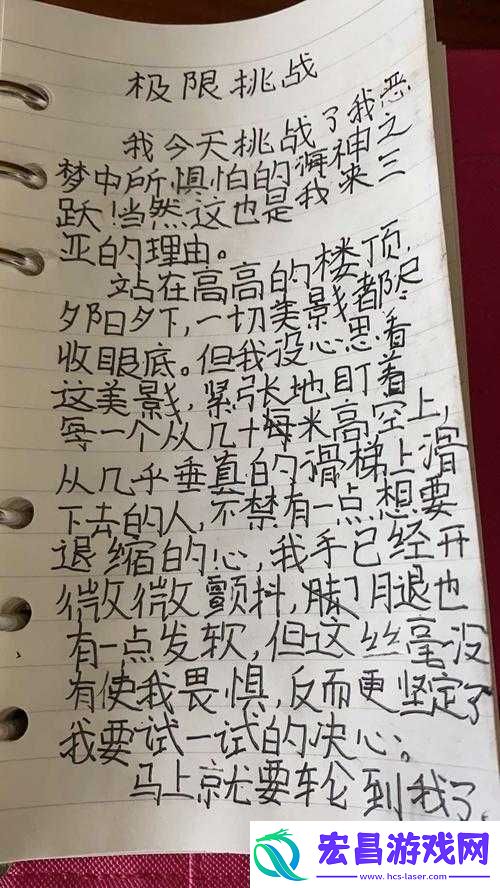 极限挑战
我今天挑战了我恶
梦中所惧怕的海神之
跃!当然这也是我来三
亚的理由。
站在高高的楼顶,
夕阳夕下,一切美影都尽
收眼底。但我没心思看
这美影,紧张地盯着
每一个从几十每米高空上,
从几乎垂真的滑梯上滑
下去的人,不禁有一点想要
退缩的心,我手已经开
微微颤抖,脚退也
有一点发软,但这丝毫没
有使我畏惧,反而更坚定了
我要试一试的决心。
马上就要轮到我了。
宏昌游戏网
www.hcs-laser.com